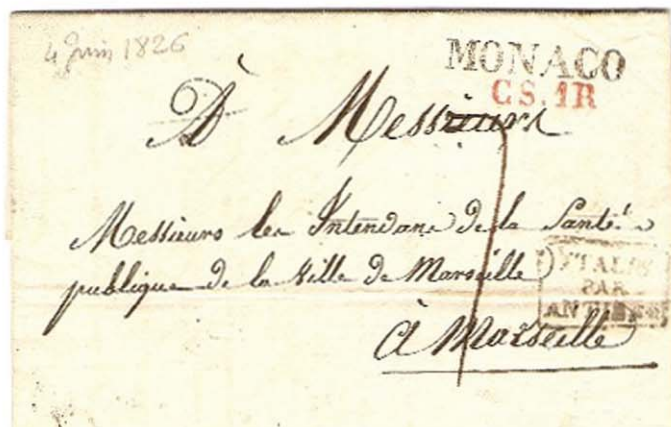 4 Juin 1826
MONACO
C S. 1R
À Messieurs
Messieurs les Intendans de la Santé
publique de la Ville de Marseille
D'ITALIE
PAR
ANTIBES
à Marseille